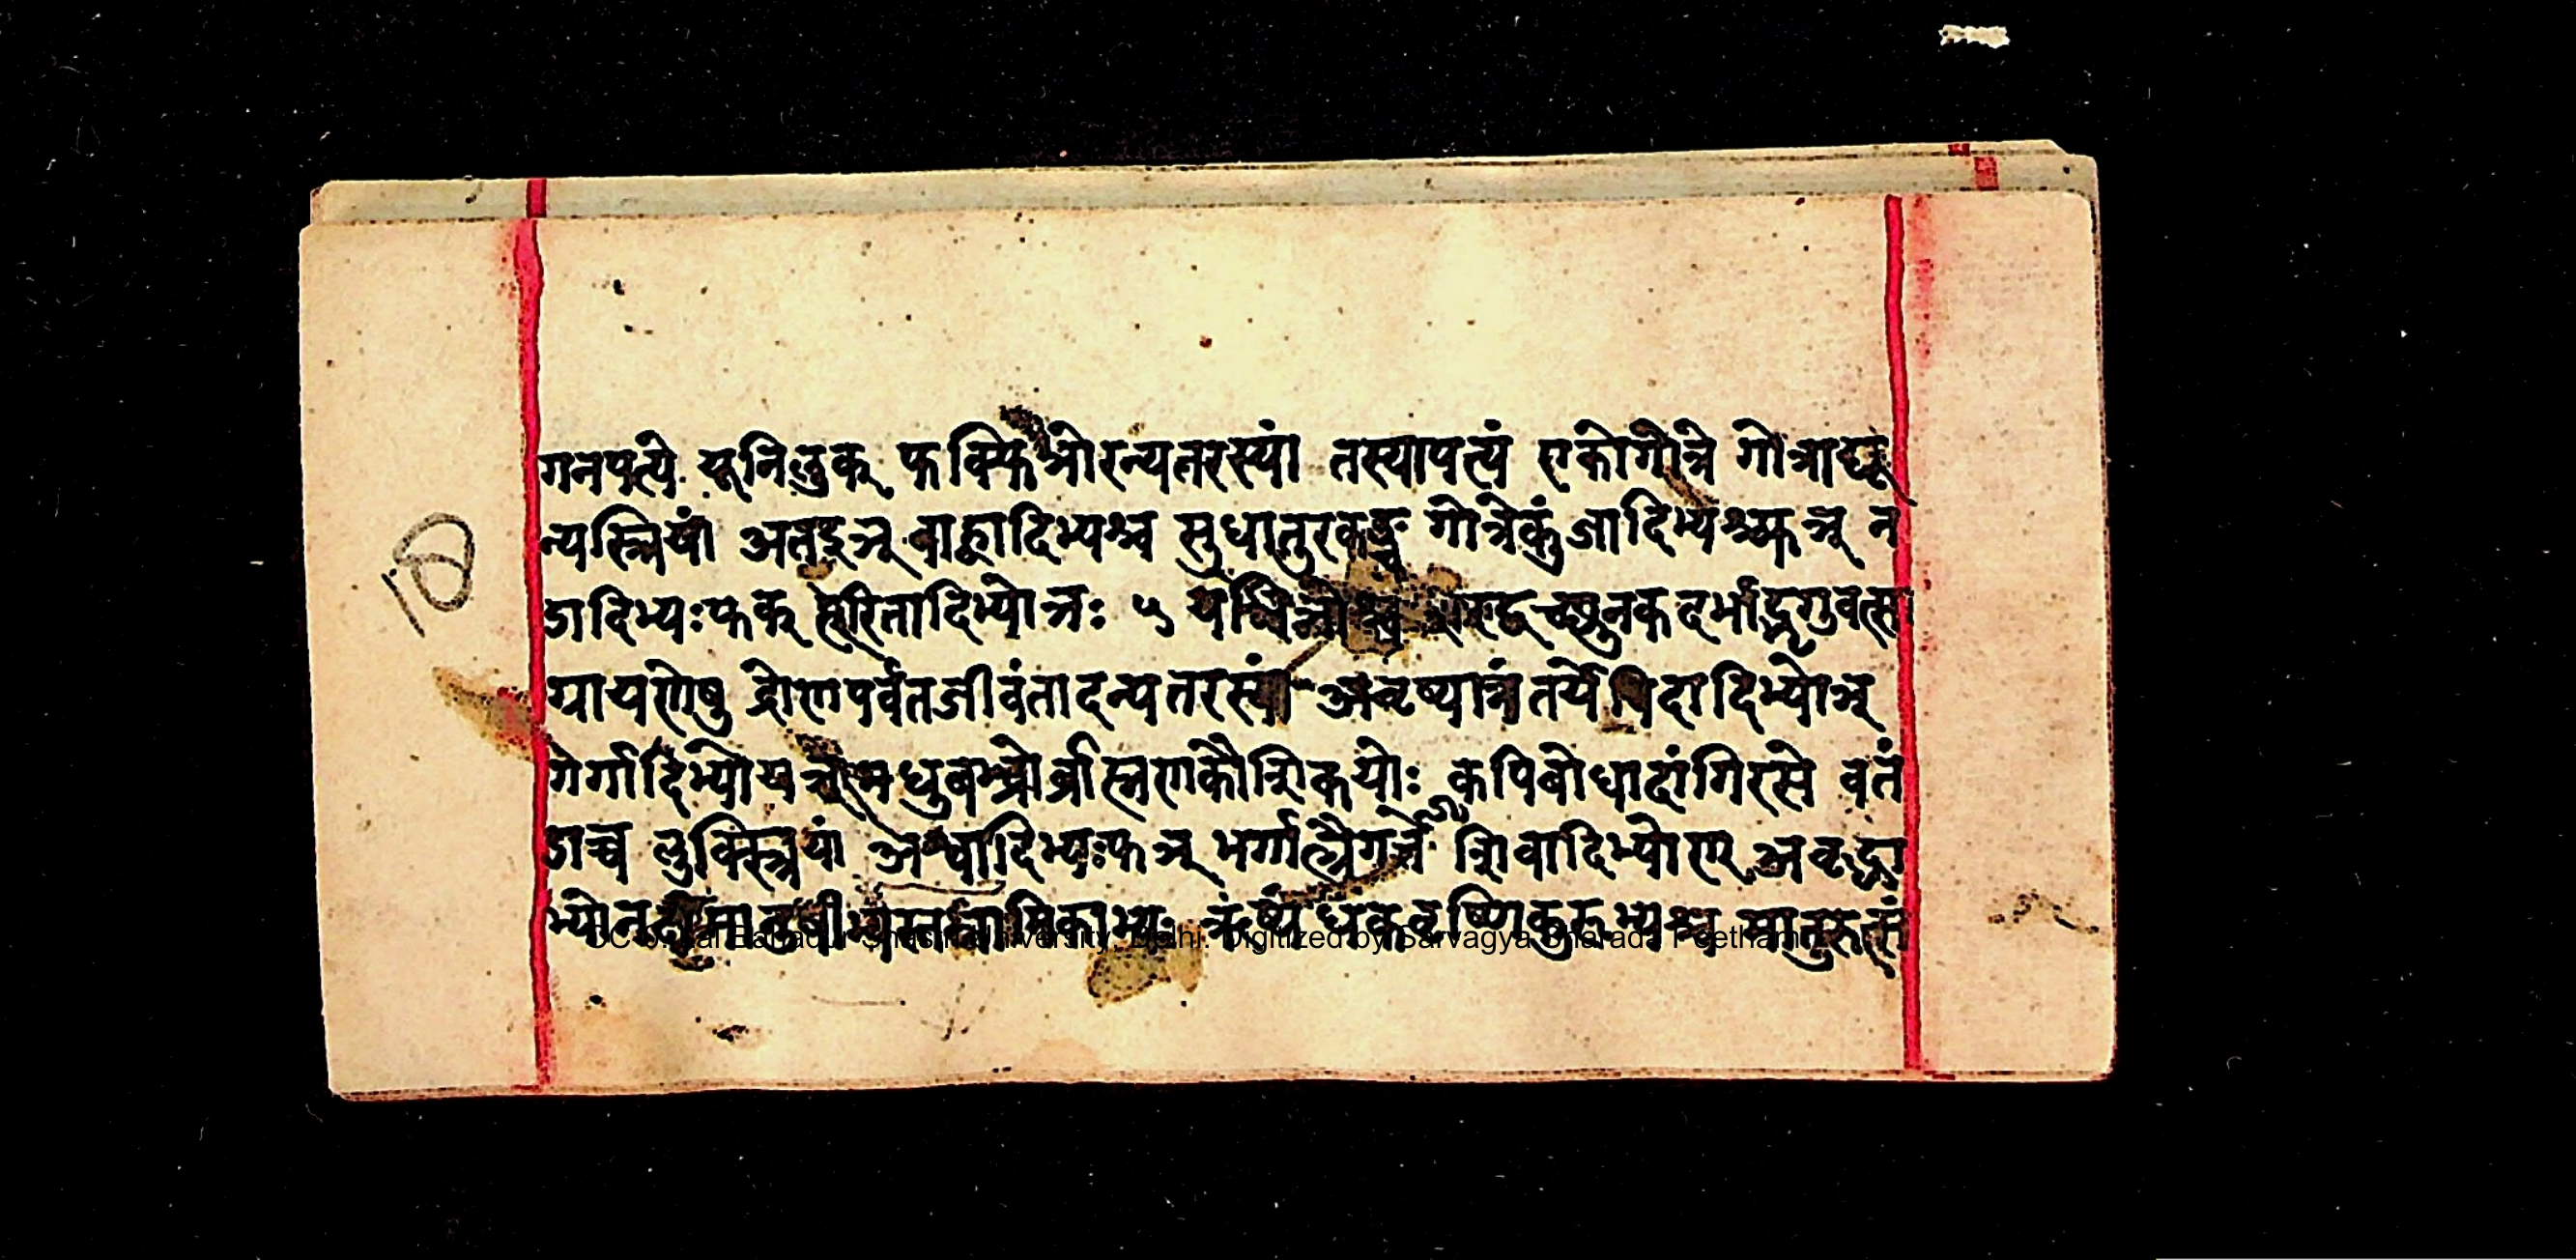 गनपत्ये यूनिलुक् फक्फिञोरन्यतरस्यां तस्यापत्यं एकोगोत्रे गोत्राद्यू
न्यस्त्रियां अतइञ् बाह्वादिभ्यश्च सुधातुरकङ्च गोत्रेकुंजादिभ्यश्च्फञ् न
डादिभ्यःफक् हरितादिभ्योञः ५ यञिञोश्च शरद्वच्छुनकदर्भाद्भृगुवत्सा
ग्रायणेषु द्रोणपर्वतजीवंतादन्यतरस्यां अनृष्यानंतर्येबिदादिभ्योञ्
गर्गादिभ्योयञ् मधुबभ्र्वोर्ब्राह्मणकौशिकयोः कपिबोधादांगिरसे वतं
डाच्च लुक्स्त्रियां अश्वादिभ्यःफञ् भर्गात्त्रैगर्त्ते शिवादिभ्योण् अवृद्धा
भ्योनदीमानुषीभ्यस्तन्नामिकाभ्यः ऋष्यंधकवृष्णिकुरुभ्यश्च मातुरुत्सं
10
CC-0. Lal Bahadur Shastri University, Delhi. Digitized by Sarvagya Sharada Peetham